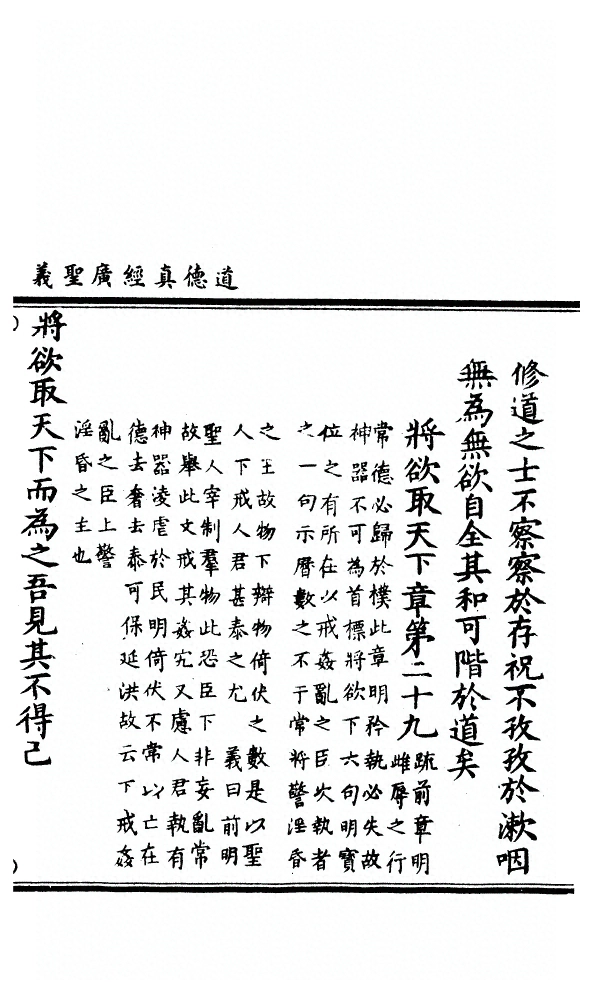 道德真經廣聖義
修道之士不察察於存祝不孜孜於漱咽
無為無欲自全其和可階於道矣
將欲取天下章第二十九
疏前章明
雌辱之行
常德必歸於樸此章明矜執必失故
神器不可為首標將欲下六句明寶
位之有所在以戒姦亂之臣次執者
之一句示曆數之不于常將警淫昏
之王故物下辯物倚伏之數是以聖
人下戒人君甚泰之尤 義曰前明
聖人宰制羣物此恐臣下非妄亂常
故舉此文戒其姦宄又慮人君執有
神器凌虐於民明倚伏不常以亡在
德去奢去泰可保延洪故云下戒姦
亂之臣上警
淫昏之主也
將欲取天下而為之吾見其不得已